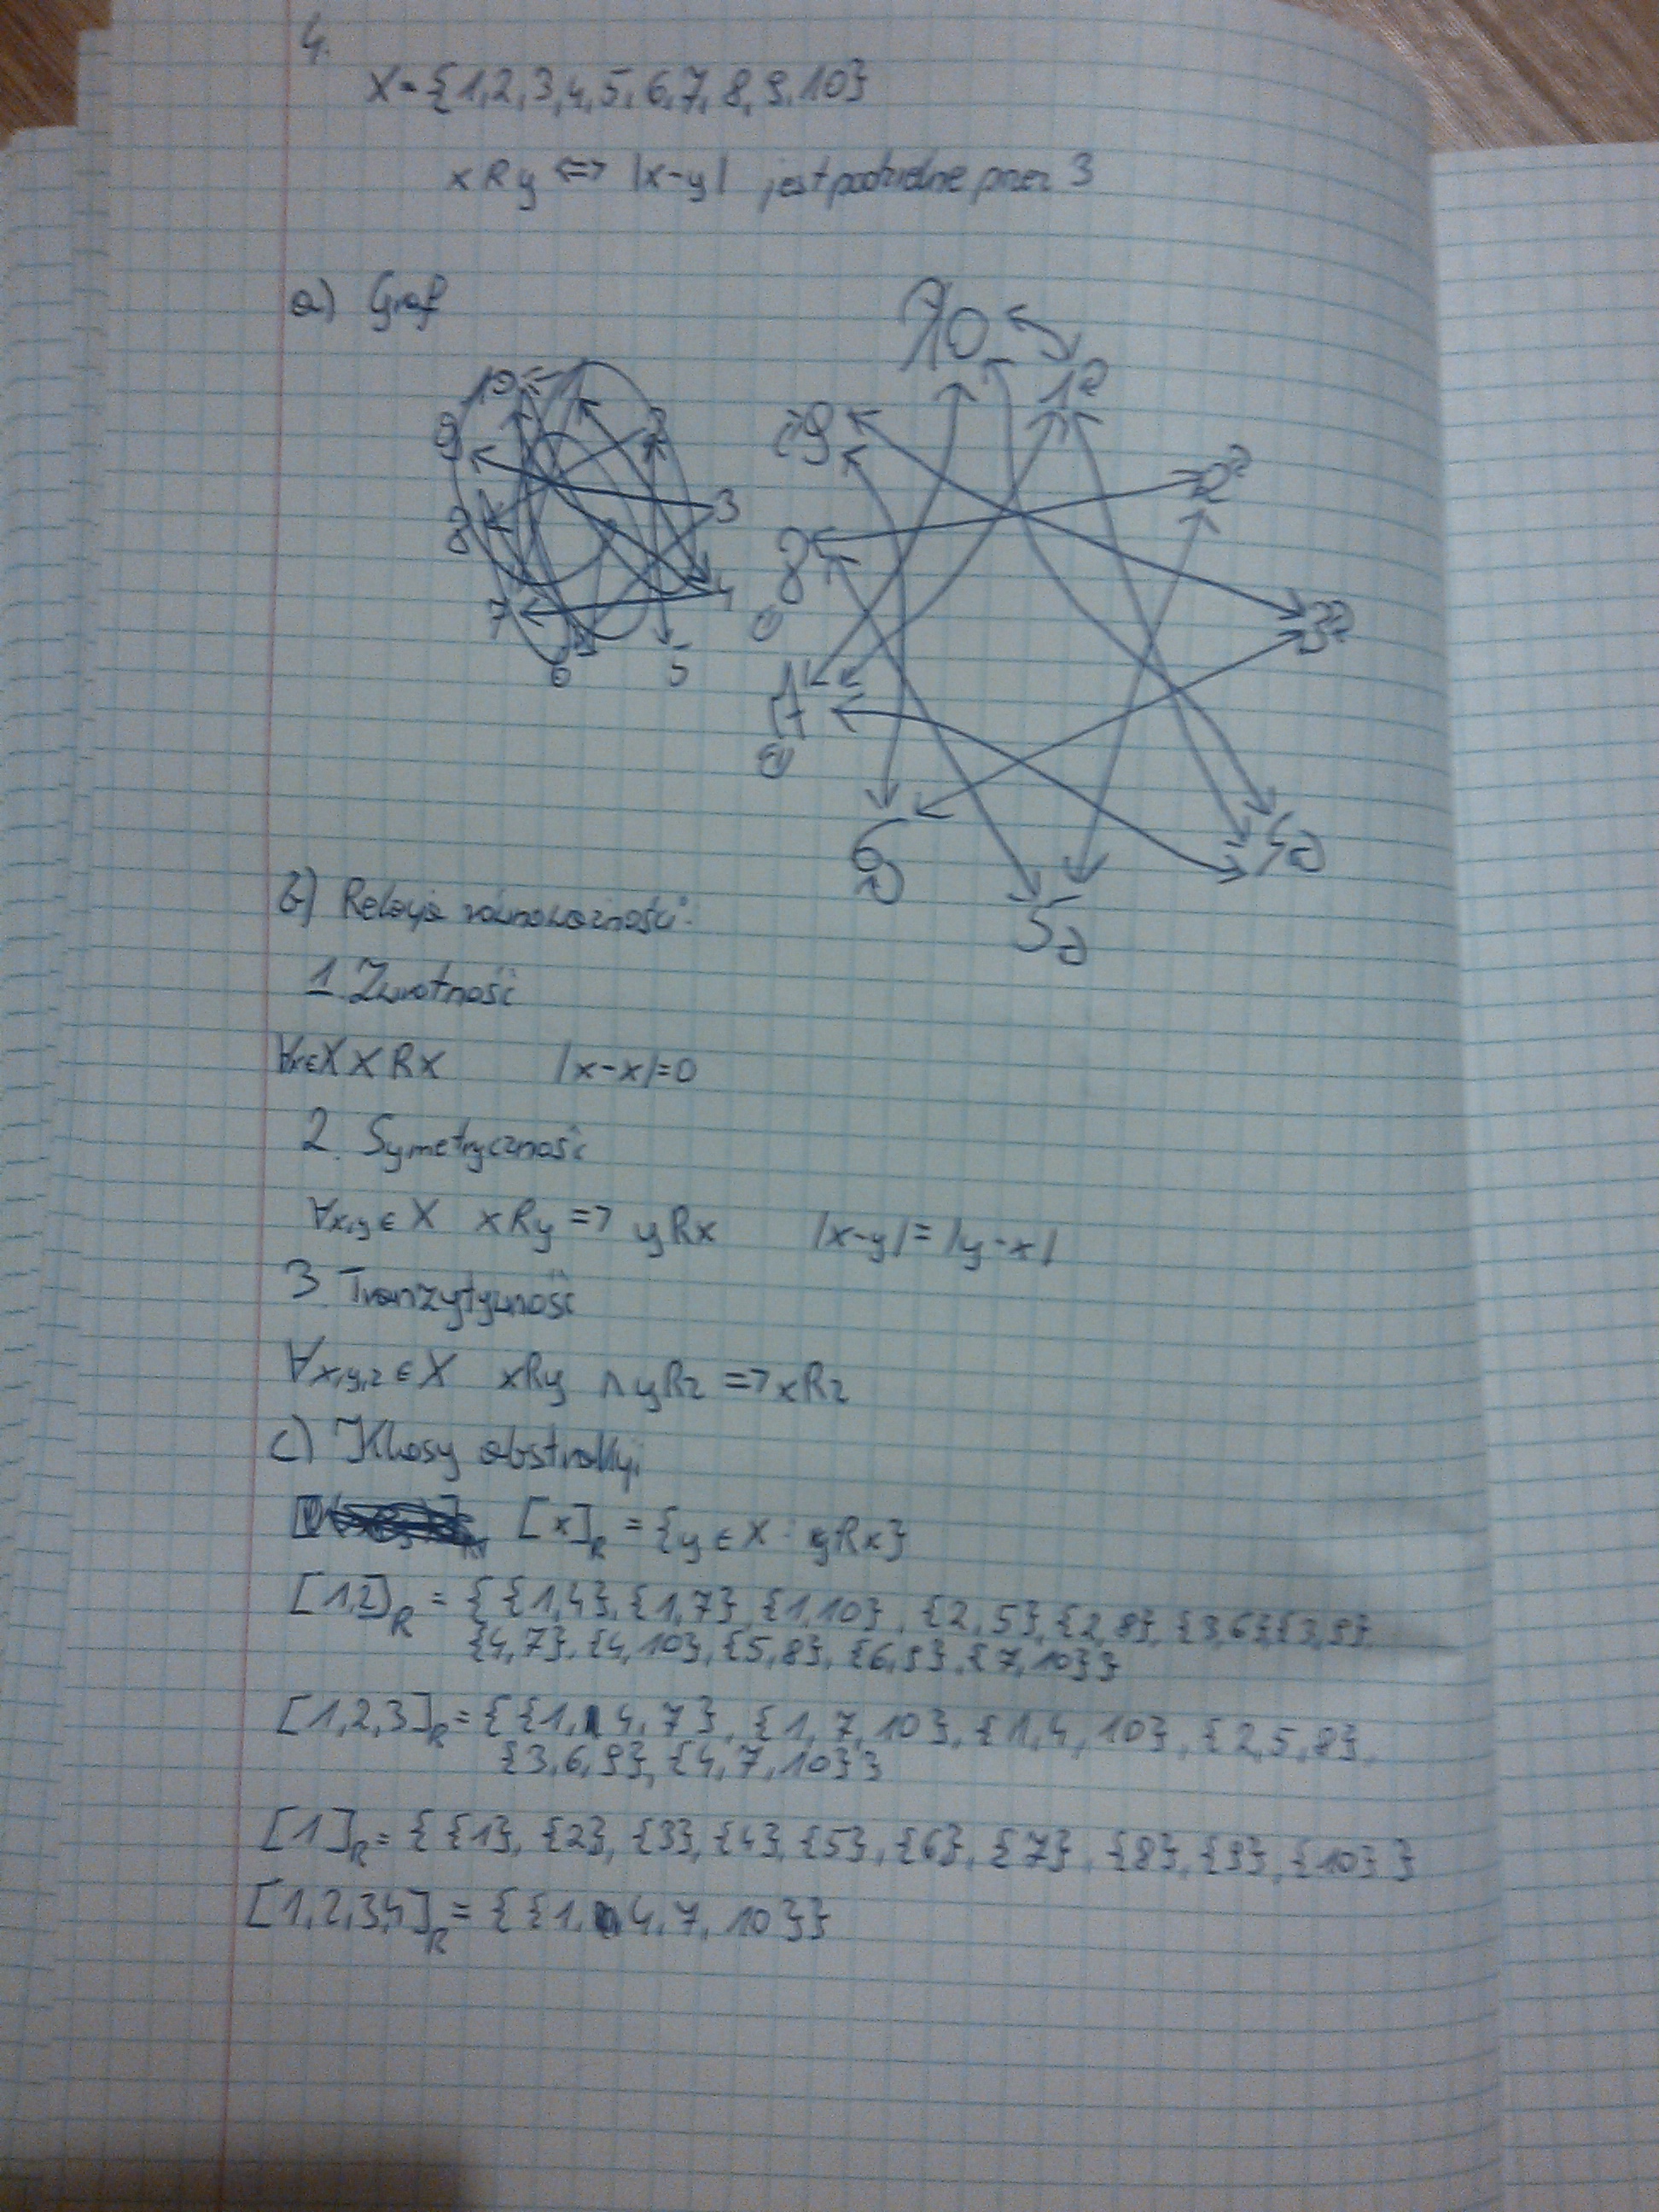 4.
X={1,2,3,4,5,6,7,8,9,10}
xRy <=> |x-y| jest podzielne przez 3
a) Graf
10 1
9 2
8 3
7 4
6 5
10 1
9 2
8 3
7 4
6 5
b) Relacja równoważności:
1. Zwrotność
∀x∈X xRx |x-x|=0
2. Symetryczność
∀x,y∈X xRy => yRx |x-y|=|y-x|
3. Tranzytywność
∀x,y,z∈X xRy ∧ yRz => xRz
c) Klasy abstrakcji
[x]R = {y∈X: yRx}
[1,2]R = {{1,4},{1,7},{1,10},{2,5},{2,8},{3,6}{3,9}
{4,7},{4,10},{5,8},{6,9},{7,10}}
[1,2,3]R = {{1,4,7},{1,7,10},{1,4,10},{2,5,8},
{3,6,9},{4,7,10}}
[1]R = {{1},{2},{3},{4},{5},{6},{7},{8},{9},{10}}
[1,2,3,4]R = {{1,4,7,10}}